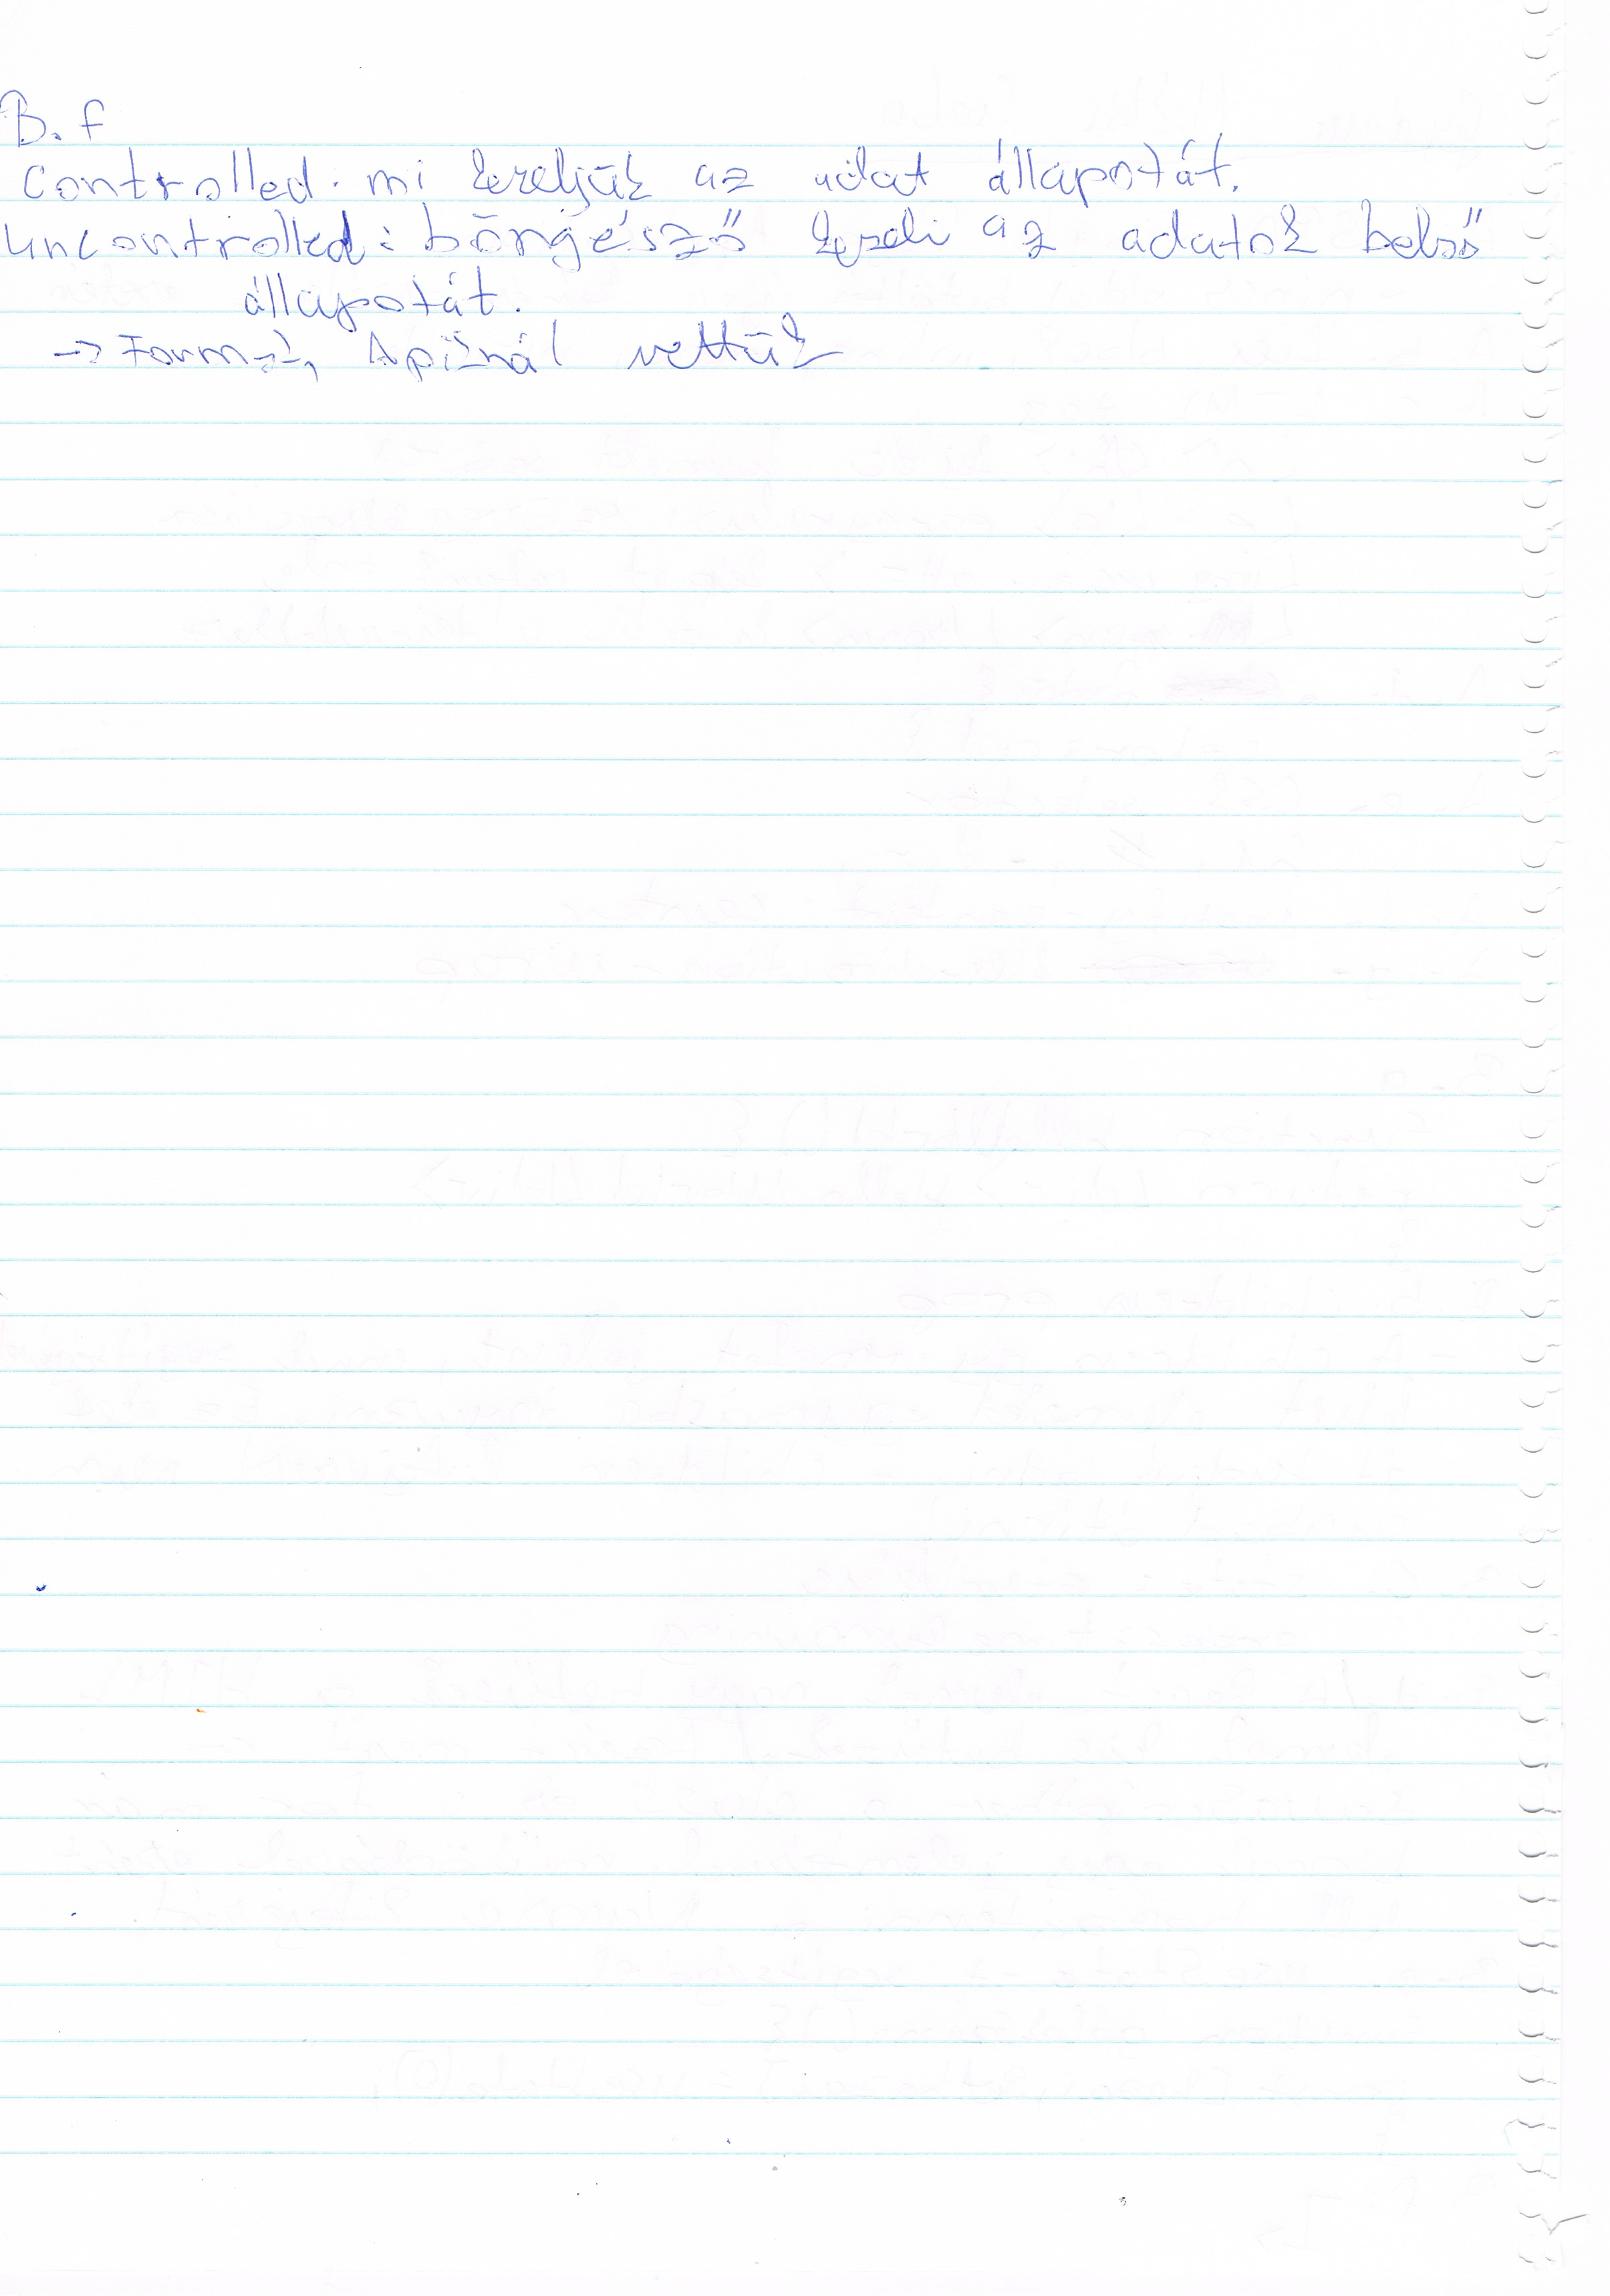 B. f
Controlled: mi kezeljük az adat állapotát.
uncontrolled: böngésző kezeli az adatok belső
állapotát.
→ Formok, Apiknál vettük